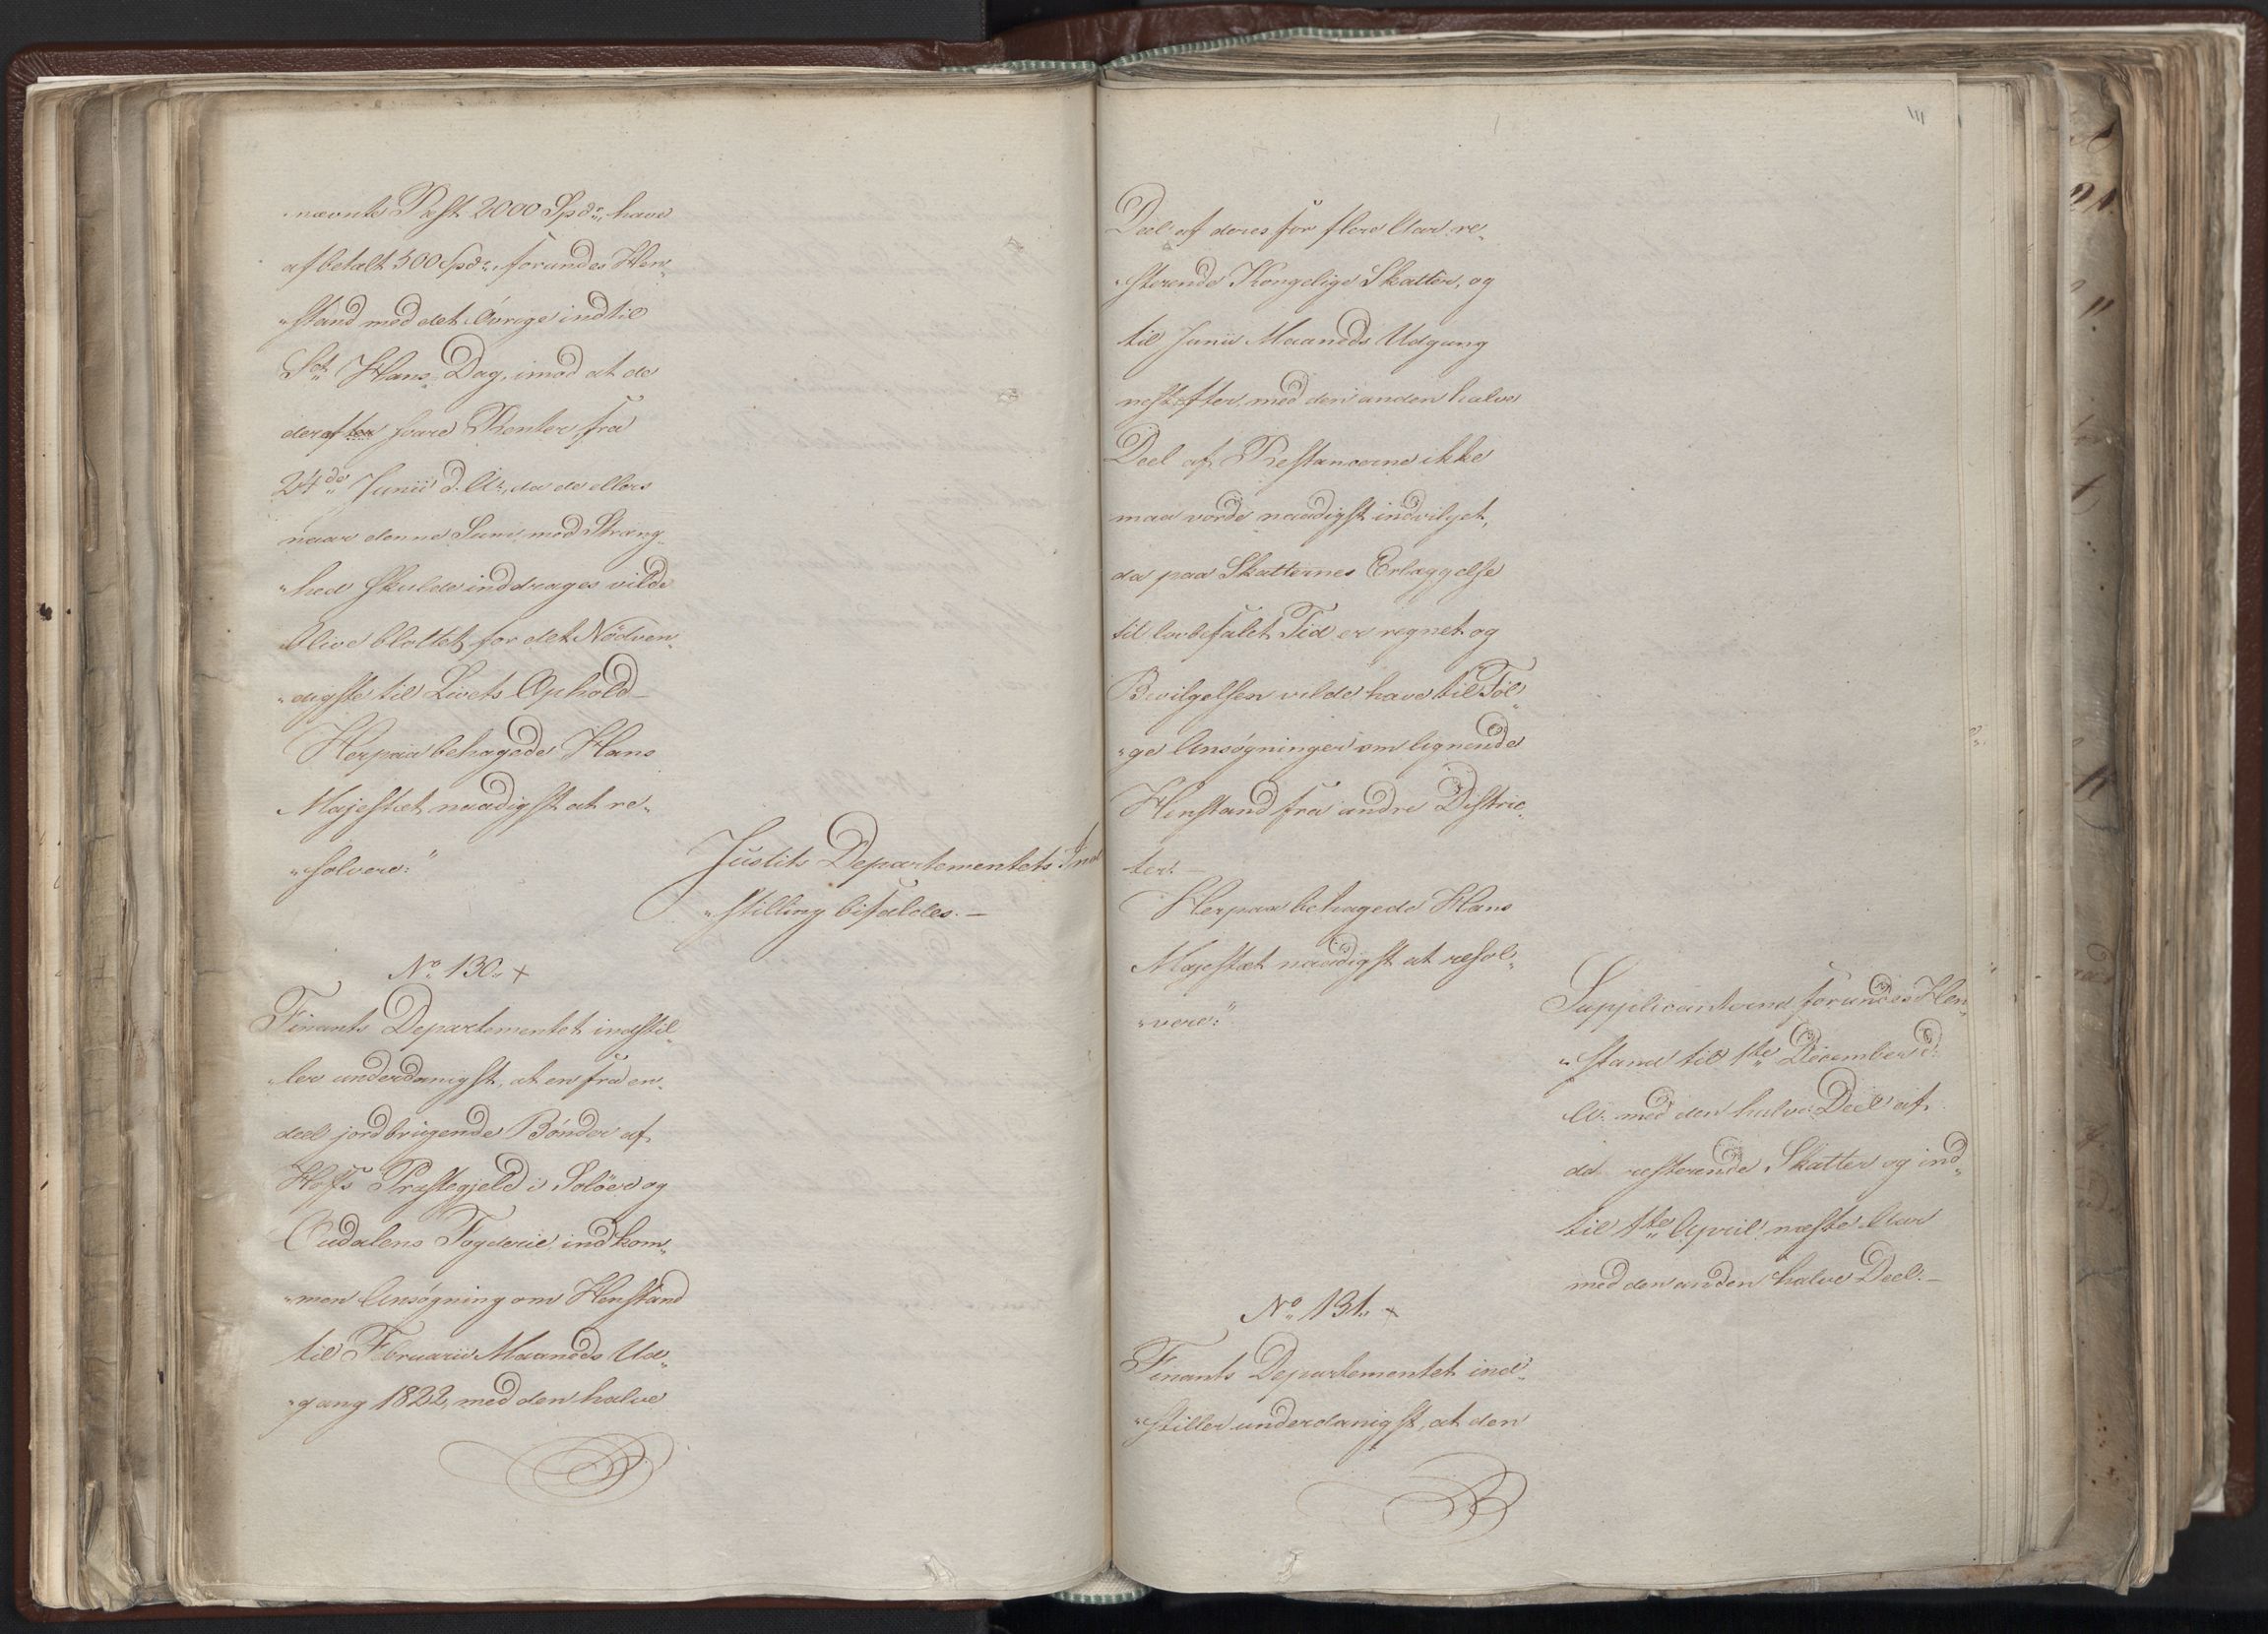 nævnte Rest 2000 Spdr, have
afbetalt 500 Spdr, forundes Hen-
„stand med det Øvrige indtil
Sct Hans Dag, imod at de
derefter svare Renter fra
24de Junii d. A:, da de ellers
naar denne Sum med Stræng-
„hed skulde inddrages vilde
blive blottet for det Nödven-
„digste til Livets Ophold —
Herpaa behagede Hans
Majestæt naadigst at re-
„solvere:"
Justits Departementets Ind
„stilling bifaldes. —
No 130. +
Finants Departementet indstil-
ler underdanigst, at en fra en-
deel jordbrugende Bönder af
Hofs Præstegjeld i Solöer og
Oudalens Fogderie indkom-
„men Ansögning om Henstand
til Februarii Maaneds Ud-
„gang 1822, med den halve
Deel af deres for flere Aar re-
„sterende Kongelige Skatter, og
til Junii Maaneds Udgang
nestefter, med den anden halve
Deel af Restancerne ikke
maa vorde naadigst indvilget,
da paa Skatternes Erlæggelse
til lovbefalet Tid er regnet og
Bevilgelsen vilde have til Föl-
„ge Ansögninger om lignende
Henstand fra andre Distric-
ter. —
Herpaa behagede Hans
Majestæt naadigst at resol-
„vere:"
Supplicanterne forundes Hen-
„stand til 1ste December d:
A: med den halve Deel af
de resterende Skatter og ind-
til 1ste April næste Aar
med den anden halve Deel. —
No 131. +
Finants Departementet ind-
„stiller underdanigst, at den